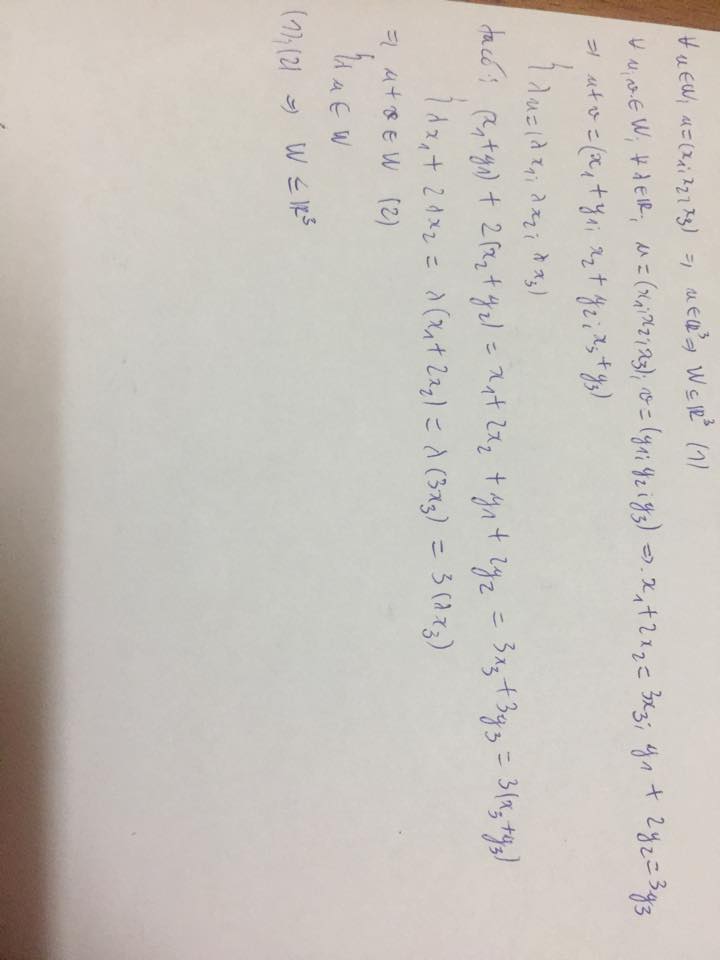 ∀ u ∈ W, u = (x₁; x₂; x₃) ⇒ u ∈ ℝ³ ⇒ W ⊆ ℝ³ (1)
∀ u, v ∈ W, ∀ λ ∈ ℝ, u = (x₁; x₂; x₃), v = (y₁; y₂; y₃) ⇒ x₁ + 2x₂ = 3x₃; y₁ + 2y₂ = 3y₃
⇒ { u + v = (x₁ + y₁; x₂ + y₂; x₃ + y₃)
λu = (λx₁; λx₂; λx₃)
Ta có: { (x₁ + y₁) + 2(x₂ + y₂) = x₁ + 2x₂ + y₁ + 2y₂ = 3x₃ + 3y₃ = 3(x₃ + y₃)
λx₁ + 2λx₂ = λ(x₁ + 2x₂) = λ(3x₃) = 3(λx₃)
⇒ { u + v ∈ W (2)
λu ∈ W
(1), (2) ⇒ W ≤ ℝ³